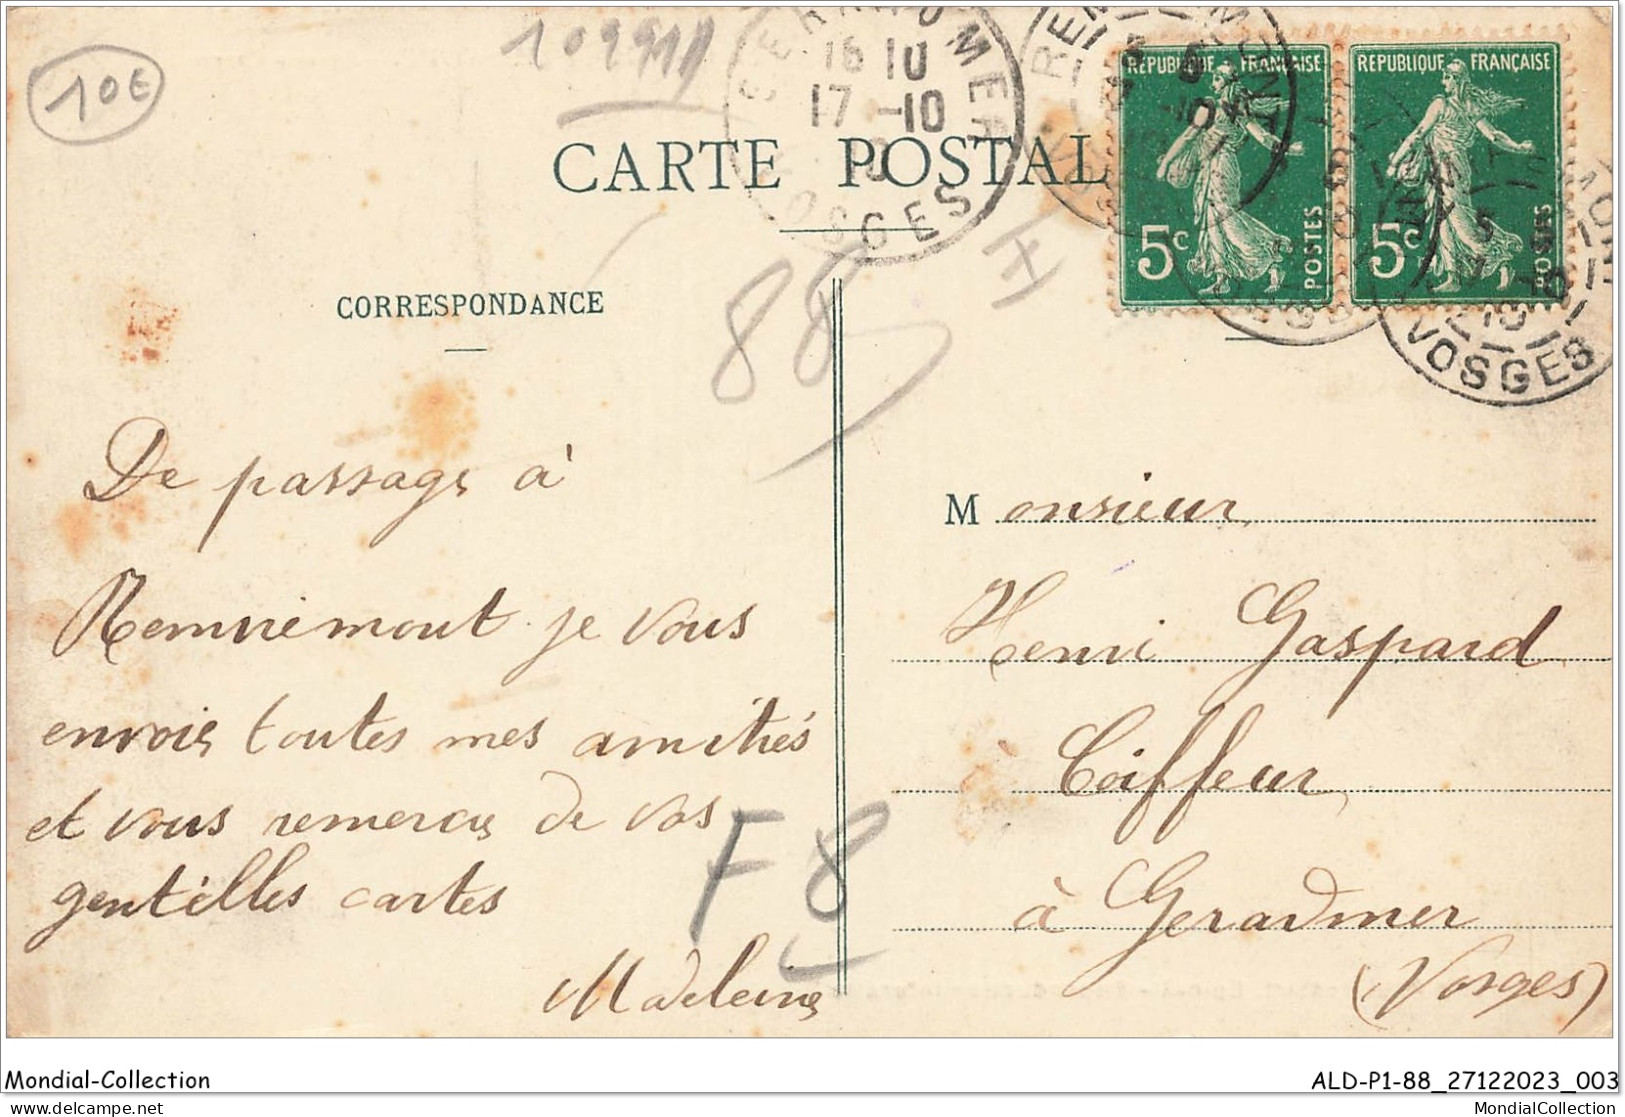 10€
109911
GERARDMER
16 10
17-10
10
VOSGES
REPUBLIQUE FRANÇAISE
REPUBLIQUE FRANÇAISE
5c
POSTES
5c
POSTES
VOSGES
CARTE POSTALE
CORRESPONDANCE
88
II
De passage à
Remiremont je vous
envoie toutes mes amitiés
et vous remercie de vos
gentilles cartes
Madeleine
F8
Monsieur
Henri Gaspard
Coiffeur
à Gerardmer
(Vosges)
Mondial-Collection
ALD-P1-88_27122023_003
delcampe.net
MondialCollection